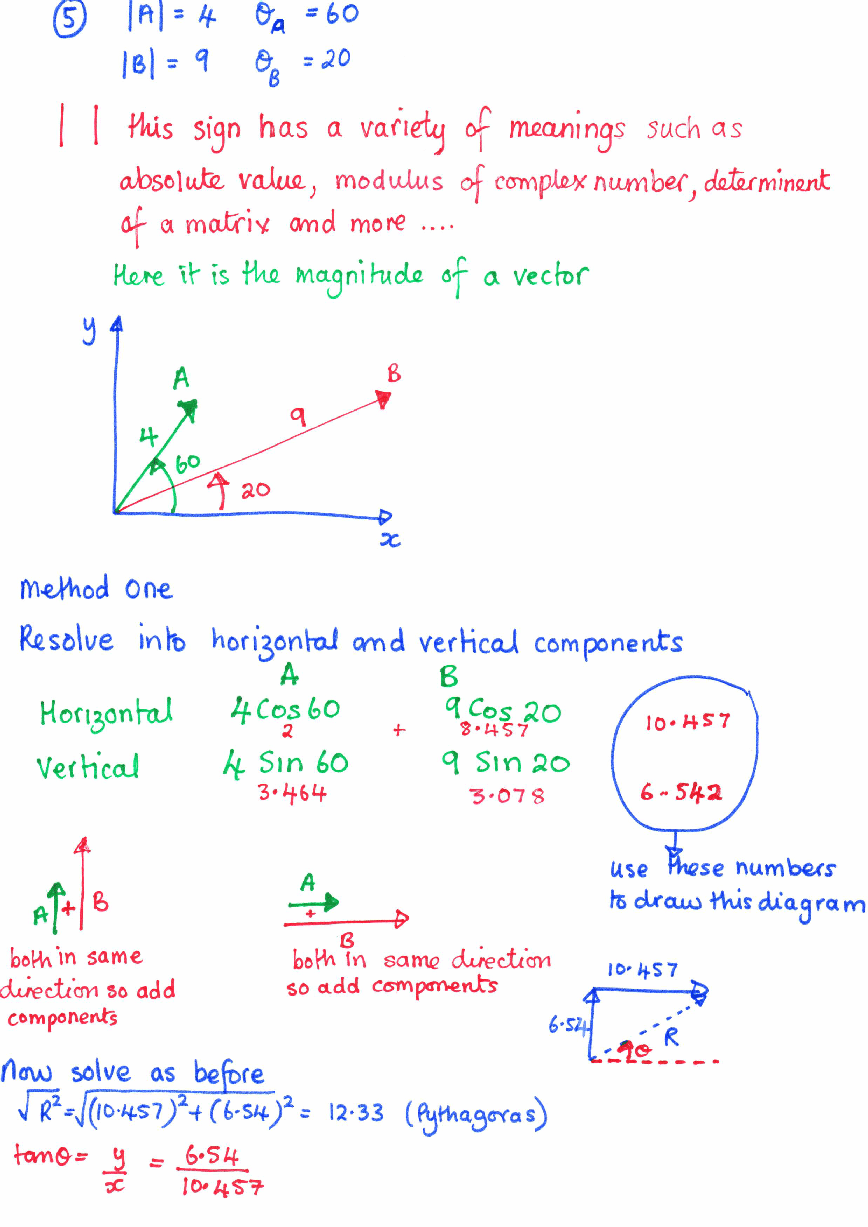 ⑤ |A| = 4 θA = 60
|B| = 9 θB = 20
| | this sign has a variety of meanings such as
absolute value, modulus of complex number, determinent
of a matrix and more ....
Here it is the magnitude of a vector
y
A
B
9
4
60
20
x
Method One
Resolve into horizontal and vertical components
A B
Horizontal 4 Cos 60 9 Cos 20 10.457
2 + 8.457
Vertical 4 Sin 60 9 Sin 20 6.542
3.464 3.078
use these numbers
to draw this diagram
A + B
A
+
B
both in same
direction so add
components
both in same direction
so add components
10.457
6.54
R
θ
Now solve as before
√R² = √(10.457)² + (6.54)² = 12.33 (Pythagoras)
tanθ = y/x = 6.54/10.457